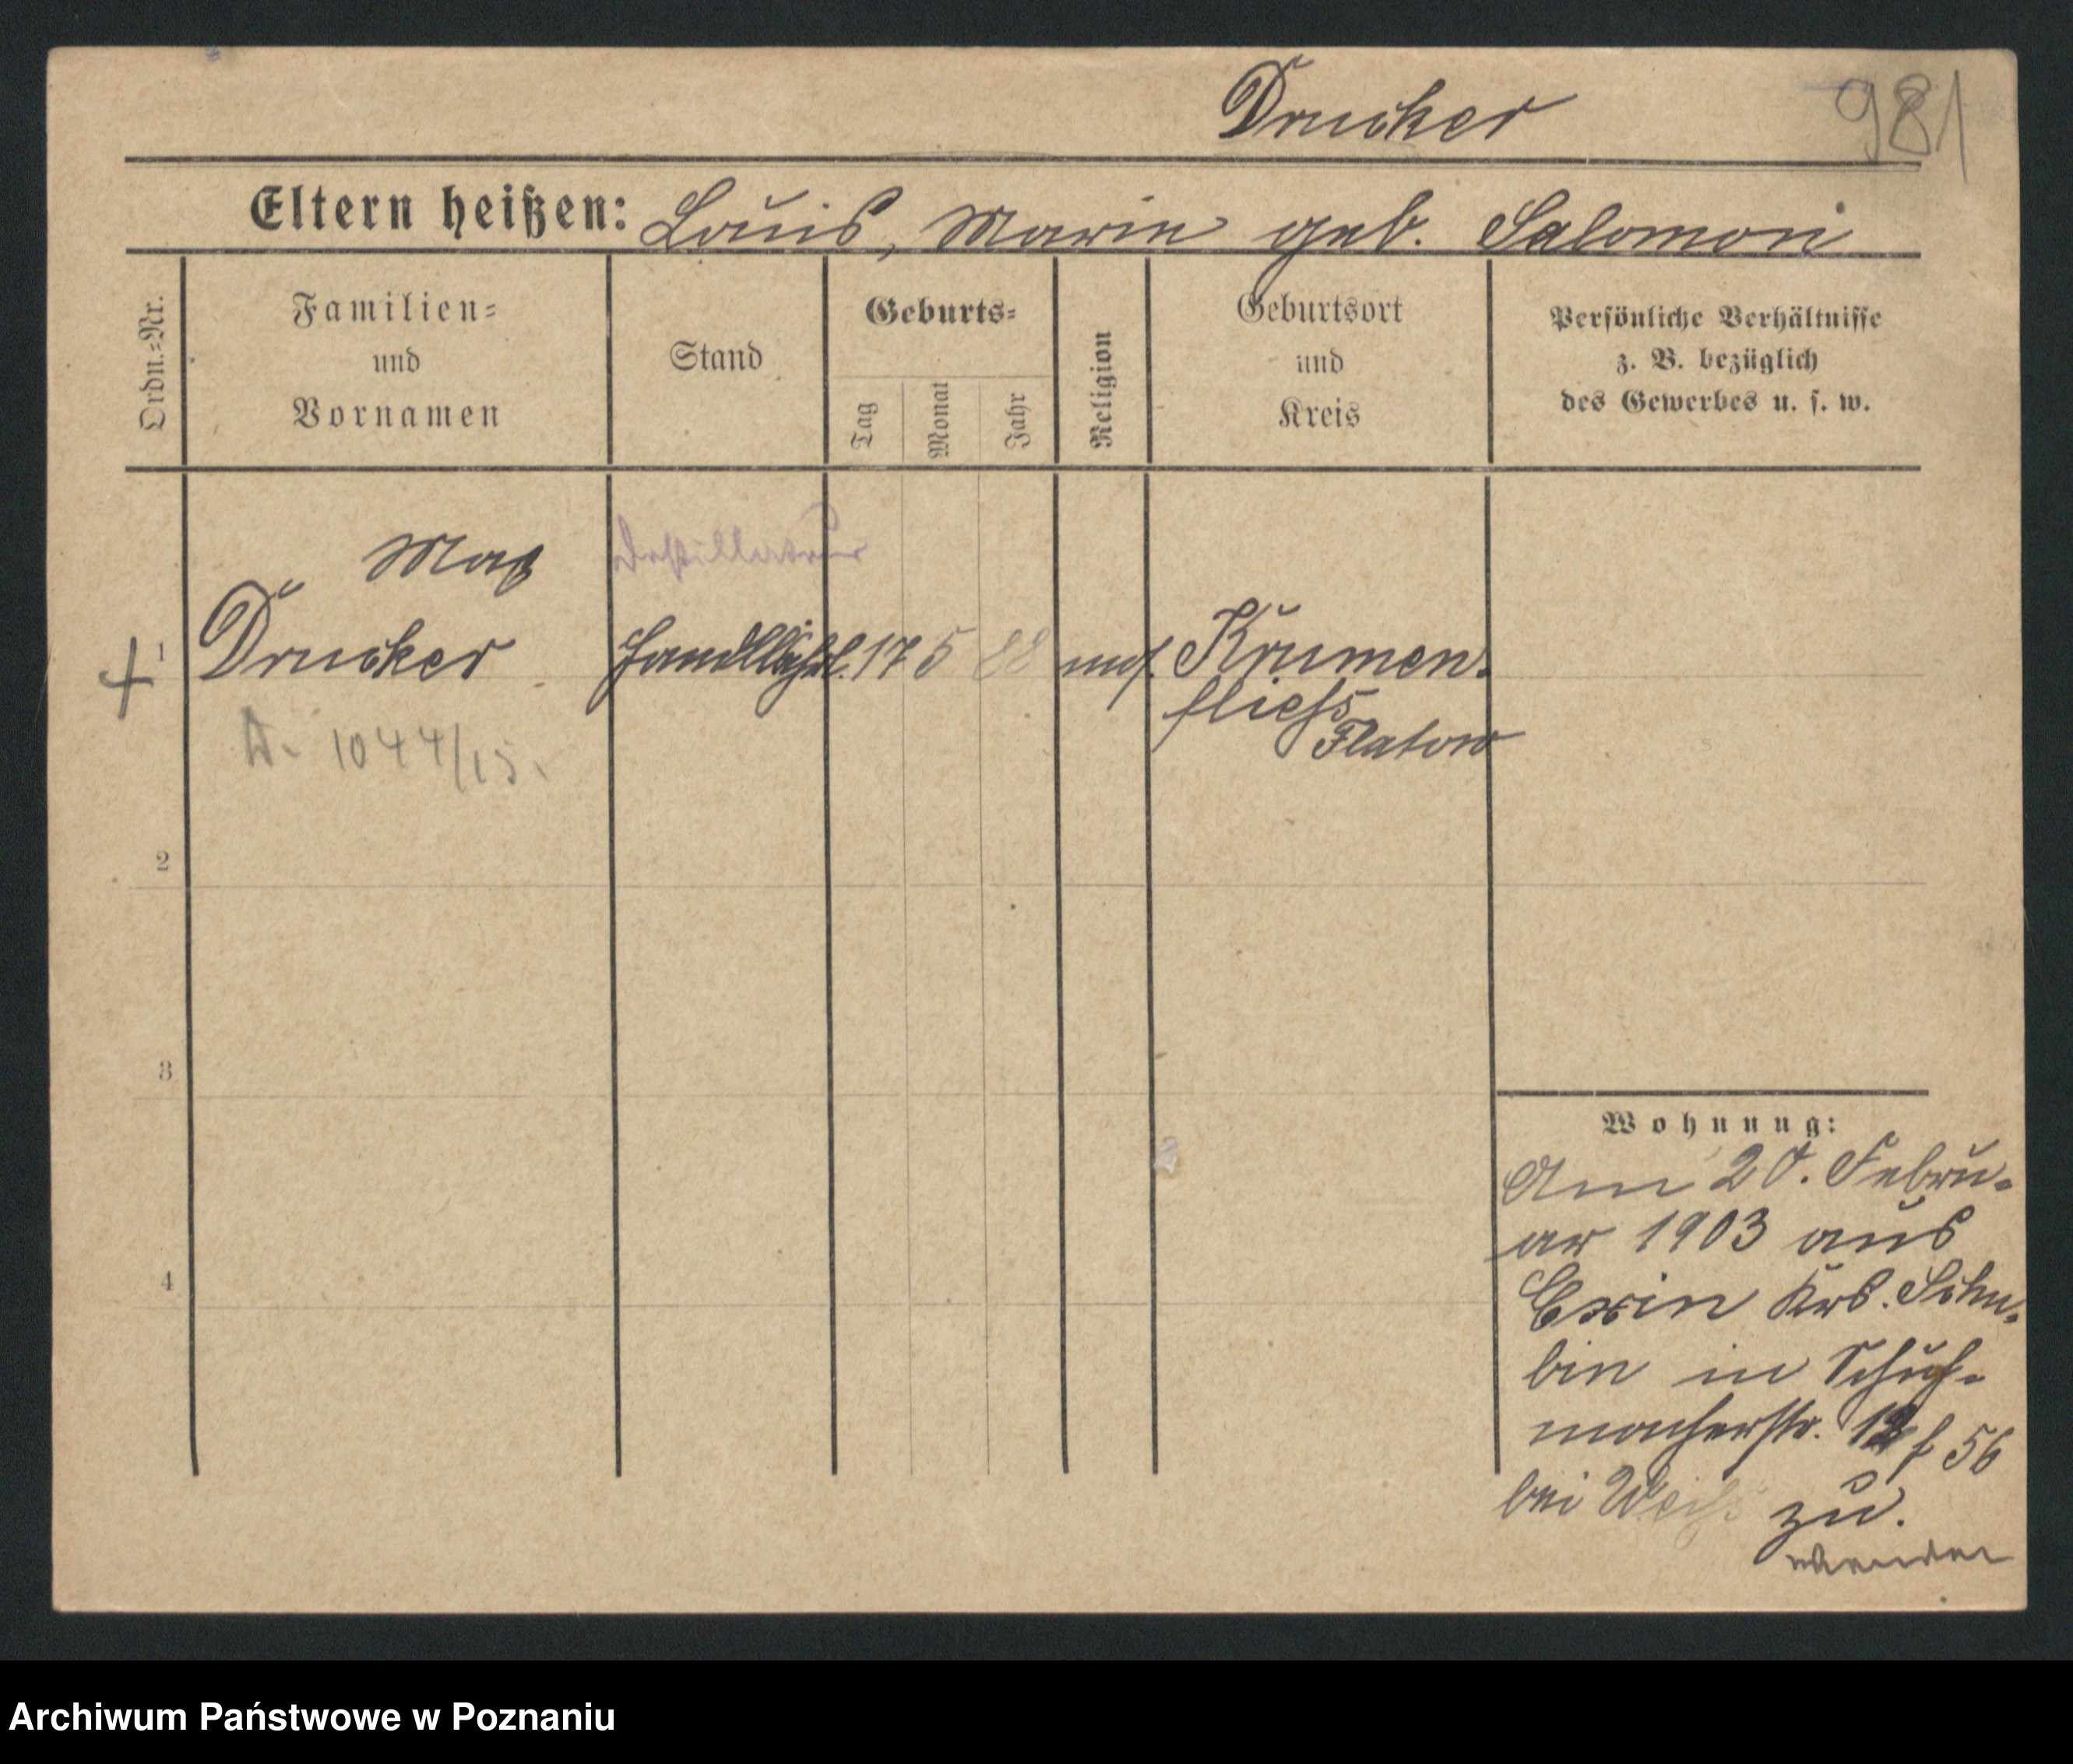 Drucker
981
Eltern heißen: Louis, Marie geb. Salomon
Ordn.-Nr.
Familien-
und
Vornamen
Stand
Geburts-
Tag
Monat
Jahr
Religion
Geburtsort
und
Kreis
Persönliche Verhältnisse
z. B. bezüglich
des Gewerbes u. s. w.
Max
Destillateur
1 Drucker Handllehrl. 17 5 88 mos. Krumen-
fliess
Flatow
1044/15.
2
3
4
Wohnung:
Am 20. Febru-
ar 1903 aus
Exin Krs. Schu-
bin in Schuh-
macherstr. 12 f 56
bei Weiss zu.
wenden
Archiwum Państwowe w Poznaniu